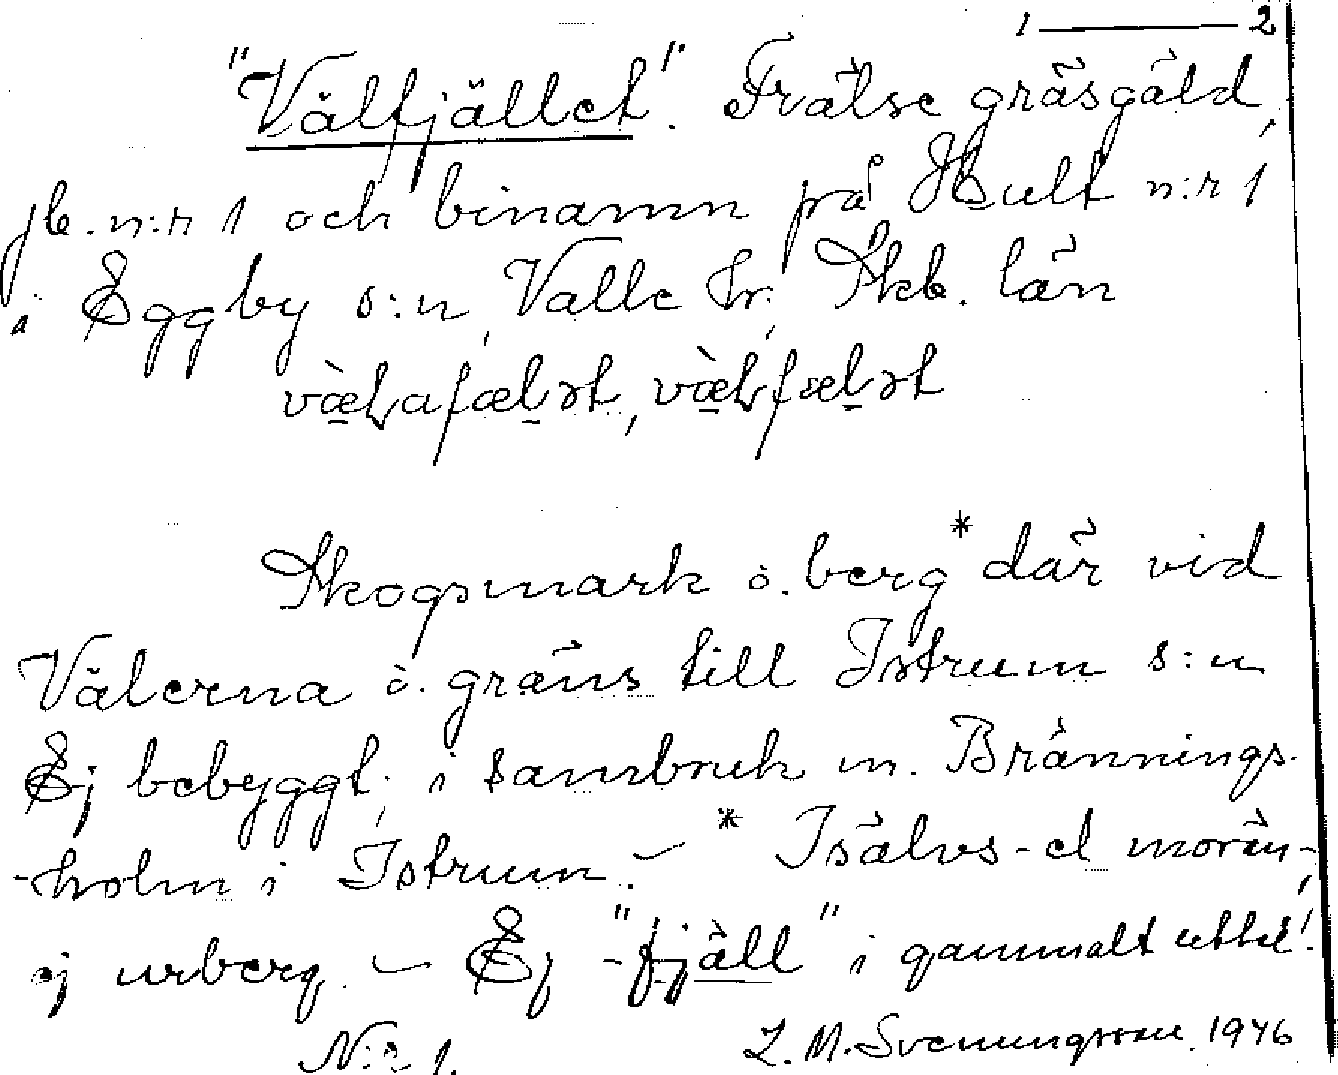 1 — 2
"Välfjället". Frälse gräsgäld,
jb. n:r 1 och binamn på Hult n:r 1
i Eggby s:n, Valle hr, Skb. län
væ̀Lafælət, væ̀Lfælət
Skogsmark o. berg* där vid
Välerna o. gräns till Istrum s:n
Ej bebyggt, i sambruk m. Brännings-
-holm i Istrum. – * Isälvs- el morän-,
ej urberg. – Ej "-fjäll" i gammalt uttal!
N:r 1. L. M. Svenungsson. 1946